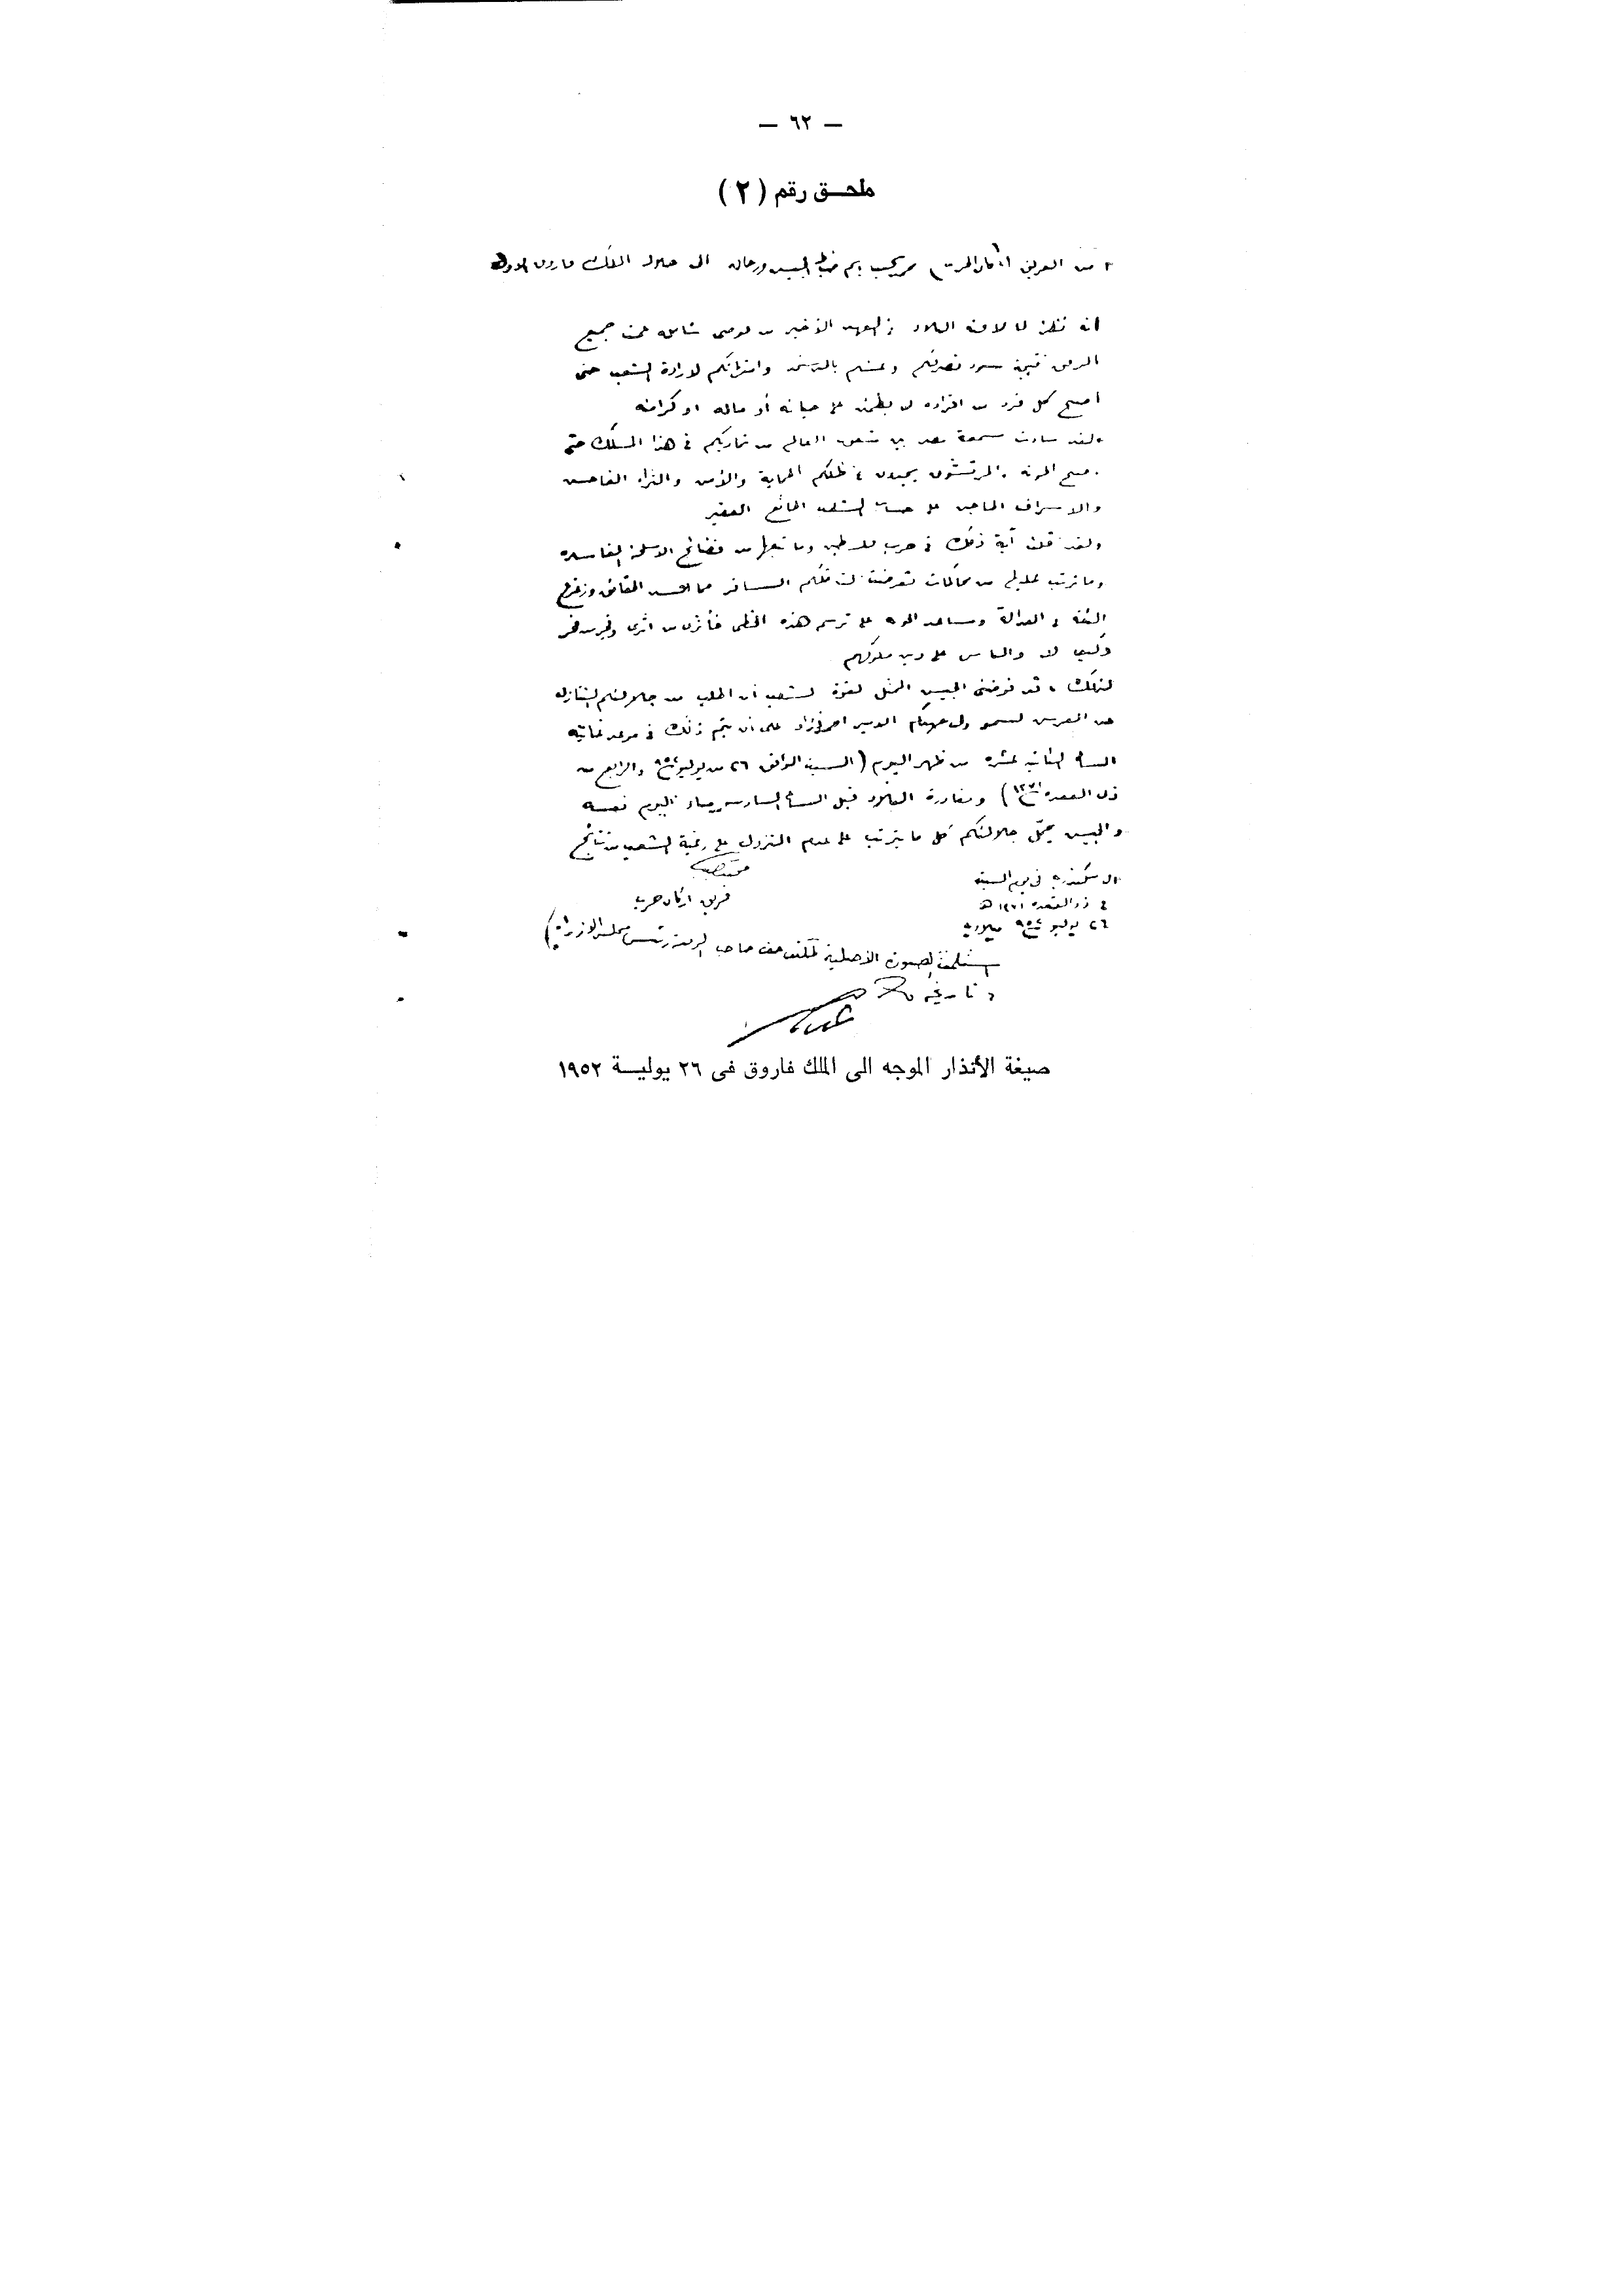 — ٦٢ —
ملحق رقم (٢)
من الفريق أركان الحرب محمد نجيب باسم ضباط الجيش ورجاله الى جلالة الملك فاروق الاول
انه نظرا لما لاقته البلاد في العهد الأخير من فوضى شاملة عمت جميع
المرافق نتيجة سوء تصرفكم وعبثكم بالدستور وامتهانكم لارادة الشعب حتى
أصبح كل فرد من افراده لا يطمئن على حياته أو ماله او كرامته
ولقد ساءت سمعة مصر بين شعوب العالم من تماديكم في هذا المسلك حتى
أصبح الخونة والمرتشون يجدون في ظلكم الحماية والأمن والثراء الفاحش
والاسراف الماجن على حساب الشعب الجائع الفقير
ولقد تجلت آية ذلك في حرب فلسطين وما تبعها من فضائح الاسلحة الفاسدة
وما ترتب عليها من محاكمات تعرضت لتدخلكم السافر مما افسد الحقائق وزعزع
الثقة في العدالة وساعد الخونة على ترسم هذه الخطى فأثرى من اثرى وفجر من فجر
وكيف لا والناس على دين ملوكهم
لذلك قد فوضنى الجيش الممثل لقوة الشعب أن اطلب من جلالتكم التنازل
عن العرش لسمو ولى عهدكم الامير احمد فؤاد على ان يتم ذلك في موعد غايته
الساعة الثانية عشرة من ظهر اليوم (السبت الموافق ٢٦ من يوليو ٩٥٢ والرابع من
ذى القعدة ١٣٧١) ومغادرة البلاد قبل الساعة السادسة من مساء اليوم نفسه
والجيش يحمل جلالتكم كل ما يترتب على عدم النزول على رغبة الشعب من نتائج
الاسكندرية في يوم السبت
٤ ذو القعدة ١٣٧١ هـ
٢٦ يوليو ٩٥٢ ميلادية
فريق اركان حرب
استلمت الصورة الأصلية صاحب الرفعة رئيس مجلس الوزراء)
صيغة الأنذار الموجه الى الملك فاروق فى ٢٦ يوليسة ١٩٥٢